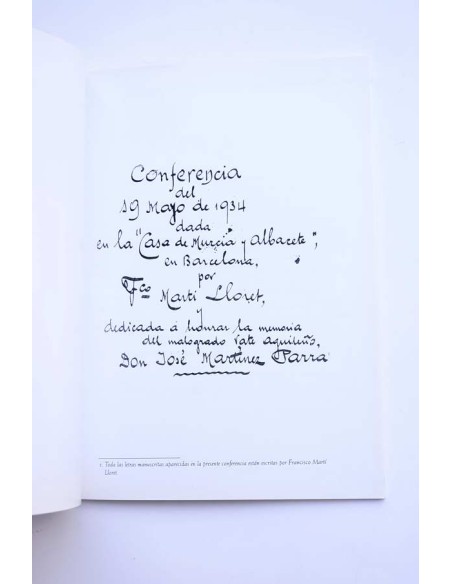 Conferencia
del
19 Mayo de 1934
dada
en la "Casa de Murcia y Albacete",
en Barcelona,
por
Fco Martí Lloret,
y
dedicada á honrar la memoria
del malogrado vate aguileño,
Don José Martínez Parra
1. Todo las letras manuscritas aparecidas en la presente conferencia están escritas por Francisco Martí
Lloret